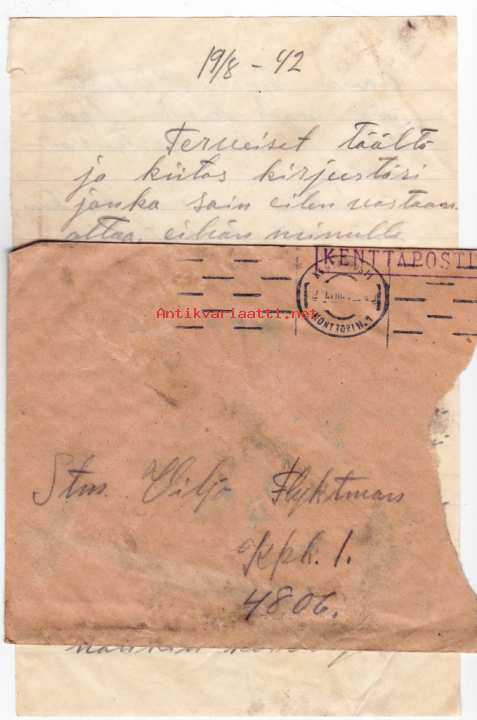 19/8 - 42
Terveiset täältö
ja kiitos kirjestäsi
jonka sain eilen vastaan
ottaa, eihän minulle
KENTTÄPOSTI
KONTTORI N:1
Antikvariaatti.net
Stm. Viljo Flyktman
Kpk. 1.
4806.